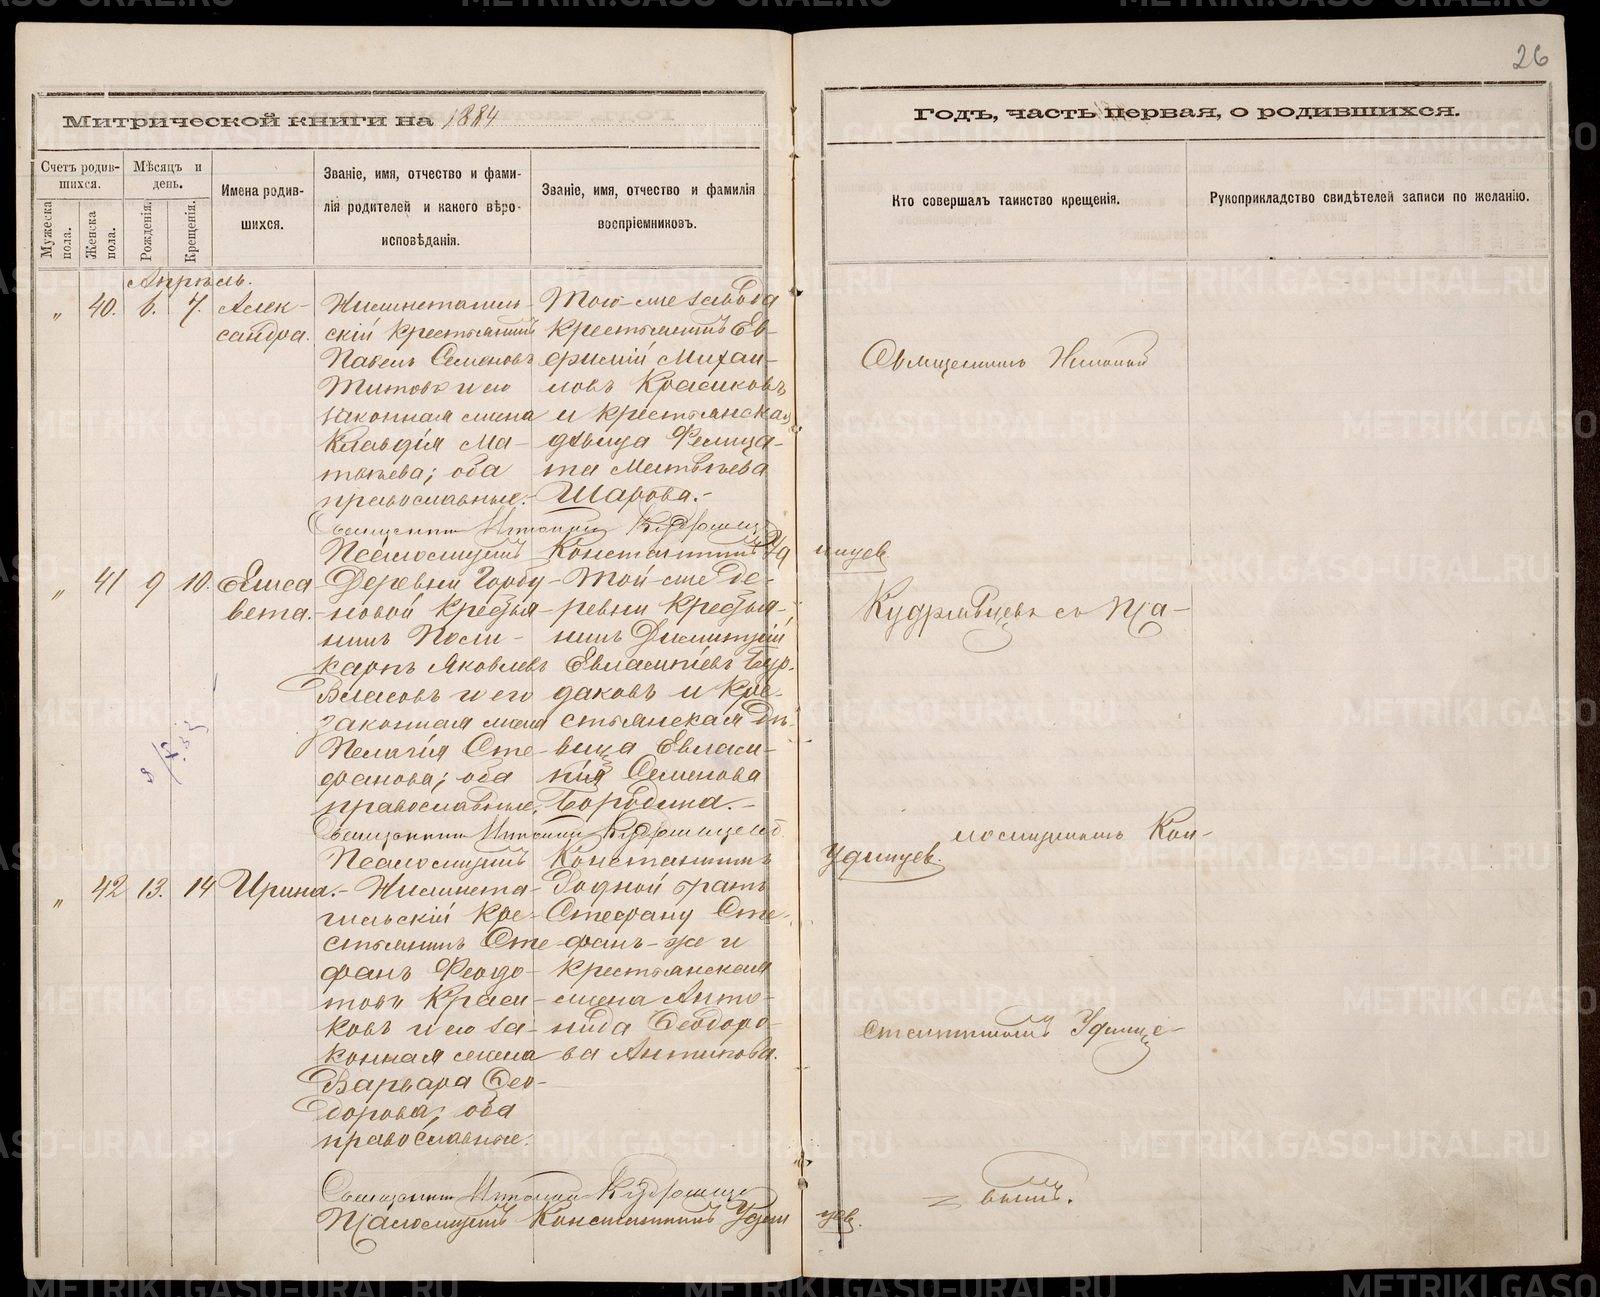 26
Митрической книги на 1884
Годъ, часть первая, о родившихся.
Счетъ родив-
шихся.
Мужеска пола.
Женска пола.
Мѣсяцъ и
день.
Рожденія.
Крещенія.
Имена родив-
шихся.
Званіе, имя, отчество и фами-
лія родителей и какого вѣро-
исповѣданія.
Званіе, имя, отчество и фамилія
воспріемниковъ.
Кто совершалъ таинство крещенія.
Рукоприкладство свидѣтелей записи по желанію.
Апрѣль.
" 40. 6. 7.
Алек-
сандра.
скій крестьянинъ
Павелъ Семеновъ
Титовъ и его
законная жена
Клавдія Ма-
твѣева; оба
православные.
Того-же завода
крестьянинъ Ев-
фимій Михаи-
ловъ Красиковъ
и крестьянская
дѣвица Фелица-
та Матвѣева
Шарова.
Священникъ
Псаломщикъ Константинъ
" 41 9 10.
Елиса
вета.
Деревни Горбу-
новой крестья-
нинъ Поли-
карпъ Яковлевъ
Власовъ и его
законная жена
Пелагія Сте-
фанова; оба
православные.
Той-же де-
ревни крестья-
нинъ Димитрій
Евлампіевъ Бур-
даковъ и кре-
стьянская дѣ-
вица Евлам-
пія Семенова
Бородина.
Священникъ
Псаломщикъ Константинъ
Удинцев.
" 42 13. 14
Ирина.
Нижнета-
гильскій кре-
стьянинъ Сте-
фанъ Феодо-
товъ Краси-
ковъ и его за-
конная жена
Варвара Фео-
дорова; оба
православные.
Родной братъ
Стефану Сте-
фанъ-же и
крестьянская
жена Анто-
нида Феодоро-
ва Антипова.
Священникъ
Псаломщикъ Константинъ Удин
цев.
Священникъ
Кудрявцевъ съ Пса-
ломщикомъ Кон-
стантиномъ Удинце-
вымъ.
METRIKI.GASO-URAL.RU